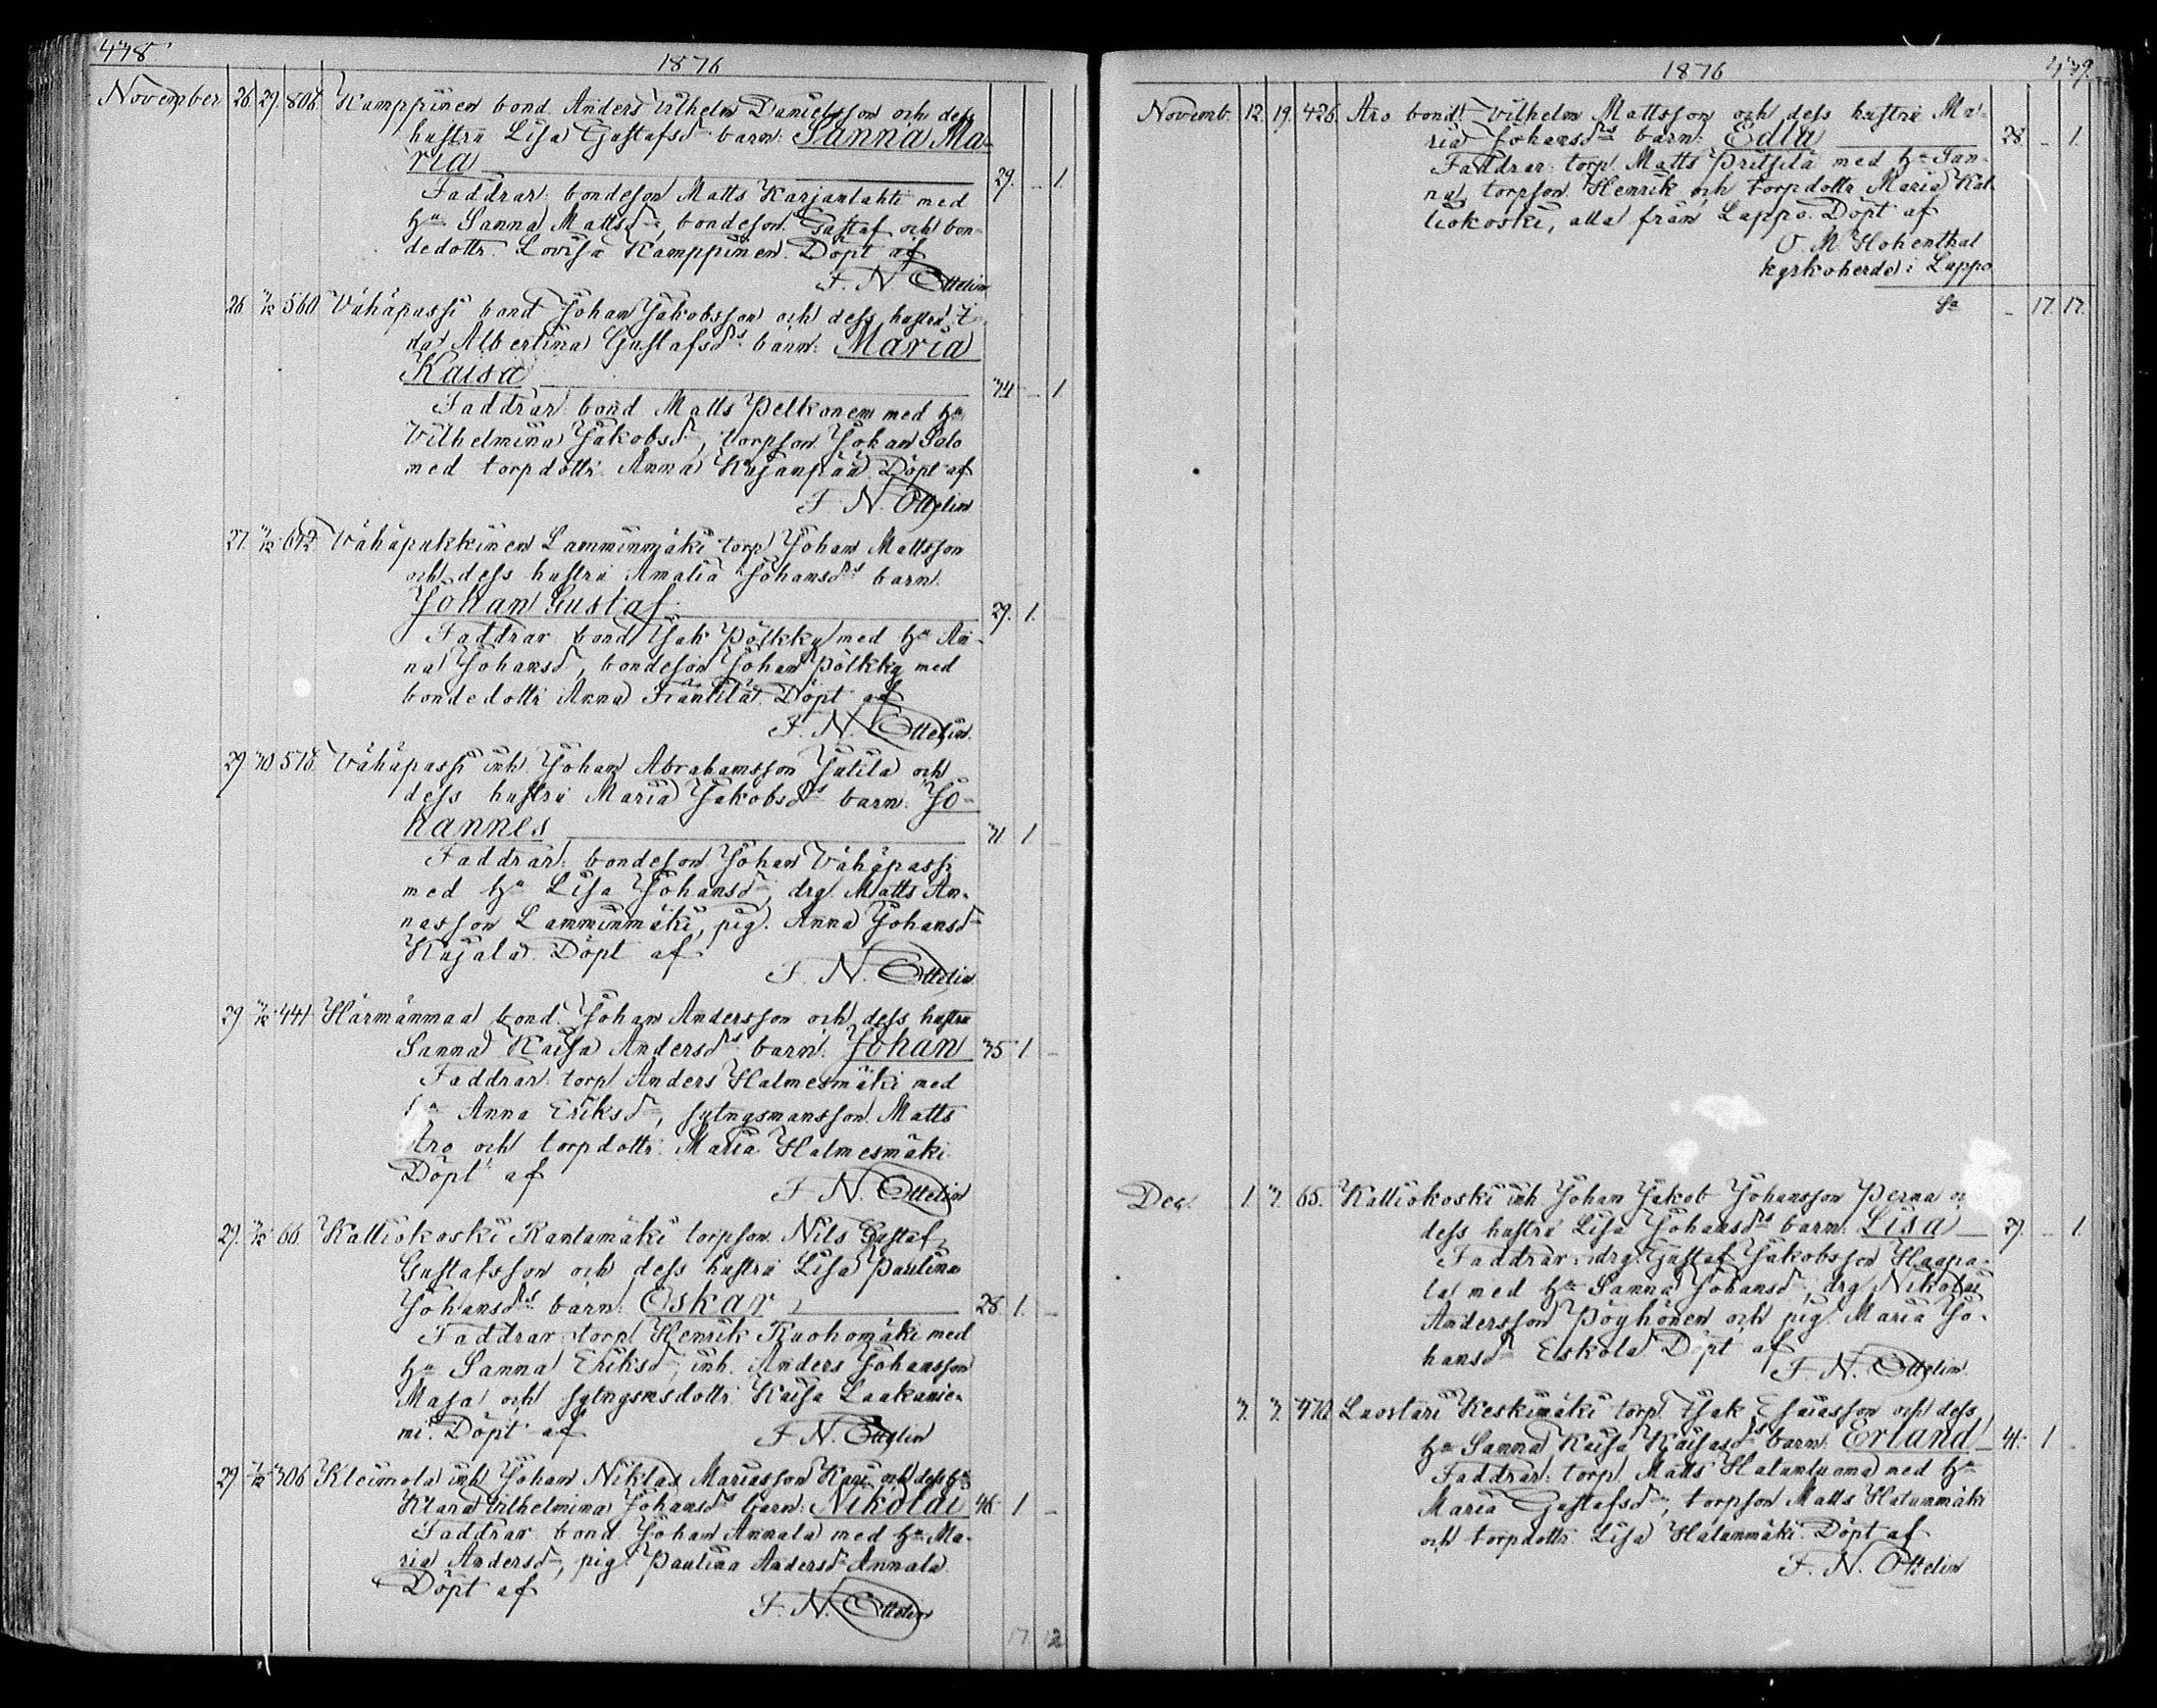 478.
1876
November 26. 29. 806. Kamppinen bond. Anders Vilhelm Danielsson och dess
hustru Lisa Gustafsd:s barn: Sanna Ma-
ria 29. - 1.
Faddrar: bondeson Matts Karjanlahti med
h:u Sanna Mattsd:r, bondeson. Gustaf och bon-
dedottr. Lovisa Kamppinen. Döpt af
F. N. Ottelin
26 560. Vähäpassi bond. Johan Jakobsson och dess hustru
da Albertina Gustafsd:s barn: Maria
Kaisa 34 - 1
Faddrar: bond. Matts Pelkonen med h:u
Vilhelmina Jakobsd:r, torpson Johan Salo
med torpdottr. Anna Kujanpää. Döpt af
F. N. Ottelin
27. 612. Vähäpukkinen Lamminmäki torp. Johan Mattsson
och dess hustru Amalia Johansd:s barn.
Johan Gustaf 29. 1.
Faddrar bond. Isak Pölkky med h:u An-
na Johansd:r, bondeson Johan Pölkky med
bondedottr. Anna Fränttilä. Döpt af
F. N. Ottelin.
29 578. Vähäpassi inh. Johan Abrahamsson Jutila och
dess hustru Maria Jakobsd:s barn. Jo-
hannes 31 1 -
Faddrar: bondeson Johan Vähäpassi
med h:u Lisa Johansd:r, drg. Matts An-
nasson Lamminmäki, pig. Anna Johansd:r
Kujala. Döpt af
F. N. Ottelin
29 441 Härmänmaa bond. Johan Andersson och dess hustru
Sanna Kaisa Andersd:s barn: Johan 35 1 -
Faddrar: torp. Anders Halmesmäki med
Anna Eriksd:r, sytngsmansson. Matts
Aro och torpdottr. Maria Halmesmäki.
Döpt af
F. N. Ottelin
29. 66. Kalliokoski Rantamäki torpson. Nils Gustaf
Gustafsson och dess hustru Lisa Paulina
Johansd:s barn: Oskar 28. 1. -
Faddrar: torp. Henrik Ruohomäki med
h:u Sanna Eriksd:r, inh. Anders Johansson
Masa och sytngsmsdottr. Kaisa Laakanie-
mi. Döpt af F. N. Ottelin
29. 306. Kleimola inh. Johan Niklas Mariasson Kari och dess h:u
Klara Vilhelmina Johansd:s barn: Nikolai 46. 1 -
Faddrar bond. Johan Annala med h:u Ma-
ria Andersd:r, pig. Paulina Andersd:r Annala
Döpt af
F. N. Ottelin
17 12
1876
479.
Novemb. 12. 19. 426. Aro bond. Vilhelm Mattsson och dess hustru Ma-
ria Johansd:s barn: Edla 28. - 1.
Faddrar: torp. Matts Pritsilä med h:u San-
na, torpson. Henrik och torpdottr. Maria Kal-
liokoski, alla från Lappo. Döpt af
V. M. Hohenthal
kyrkoherde i Lappo
S:a - 17. 17.
Dec. 1. 65. Kalliokoski inh. Johan Jakob Johansson Perna
dess hustru Lisa Johansd:s barn: Lisa - 1.
Faddrar: drg. Gustaf Jakobsson Haapa-
la med h:u Sanna Johansd:r, drg. Nikolai
Andersson Pöyhönen och pig. Maria Jo-
hansd:r Eskola Döpt af
F. N. Ottelin.
Luostari Keskimäki torp. Isak Esaiasson och dess
h:u Sanna Kaisa Kaisasd:s barn: Erland 41. 1 -
Faddrar: torp. Matts Hatunluoma med h:u
Maria Gustafsd:r, torpson Matts Hatunmäki
och torpdottr. Lisa Hatunmäki. Döpt af
F. N. Ottelin